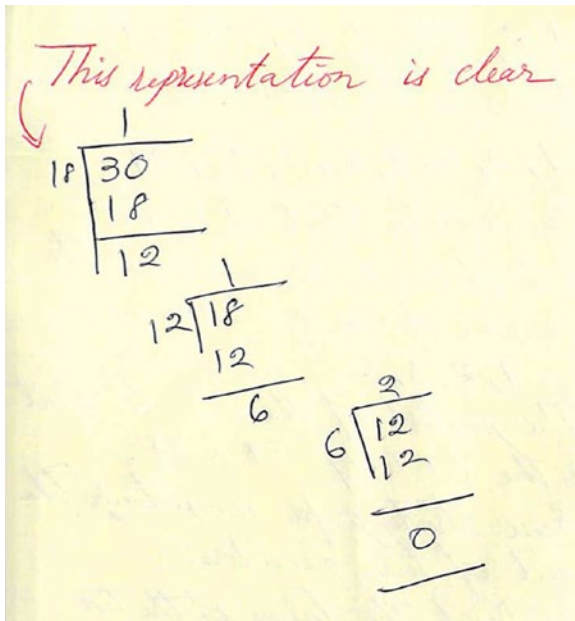 This representation is clear
1
18 30
18
12
1
12 18
12
6
2
6 12
12
0